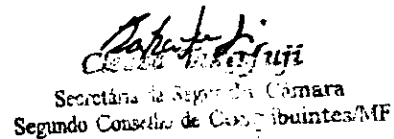 Secretária da Segunda Câmara
Segundo Conselho de Contribuintes/MF